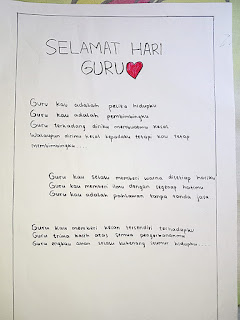 SELAMAT HARI
GURU
Guru kau adalah pelita hidupku
Guru kau adalah pembimbingku
Guru terkadang diriku membuatmu kesal
Walaupun dirimu kesal kepadaku tetapi kau tetap
membimbingku
Guru kau selalu memberi warna disetiap hariku
Guru kau memberi ilmu dengan segenap hatimu
Guru kau adalah pahlawan tanpa tanda jasa
Guru kau memberi kesan tersendiri terhadapku
Guru trima kasih atas semua pengorbananmu
Guru engkau akan selalu kukenang seumur hidupku